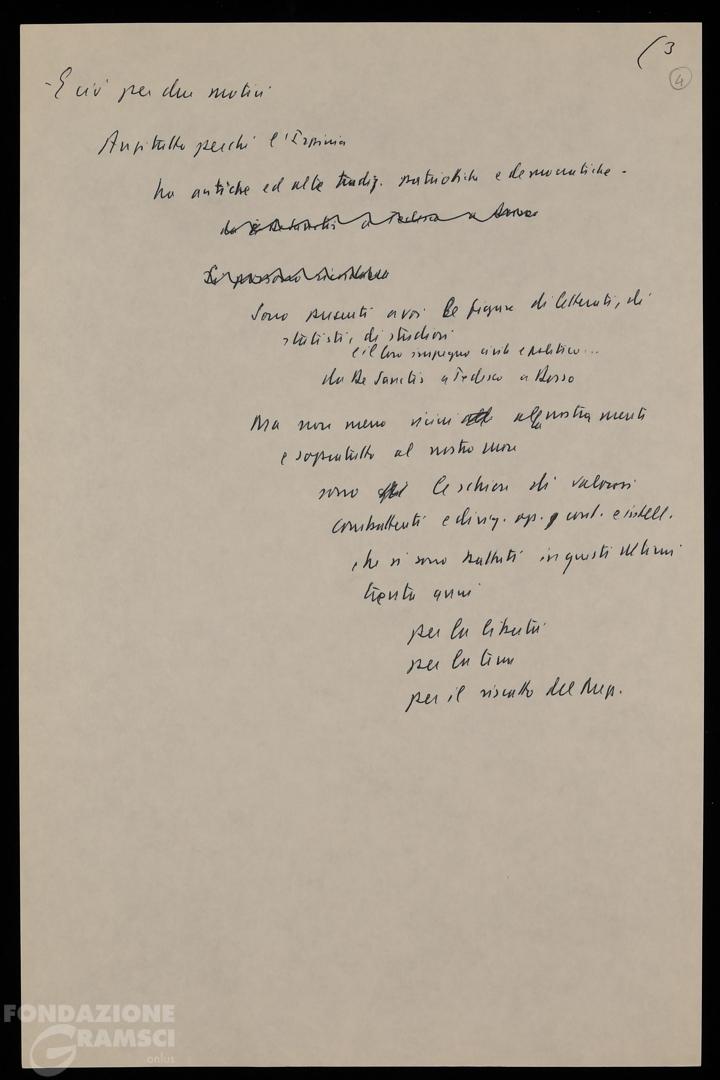 (3
4
- E ciò per due motivi
Anzitutto perché l'Irpinia
ha antiche ed alte tradiz. patriottiche e democratiche -
da De Sanctis a Tedesco a Dorso
Sono presenti a voi le figure di letterati, di
statisti, di studiosi
e il loro impegno civile e politico...
da De Sanctis a Tedesco a Dorso
Ma non meno vicini alla nostra mente
e soprattutto al nostro cuore
sono le schiere di valorosi
combattenti e dirig. op. cont. e intell.
che si sono battuti in questi ultimi
trenta anni
per la libertà
per la terra
per il riscatto del
FONDAZIONE
GRAMSCI
onlus